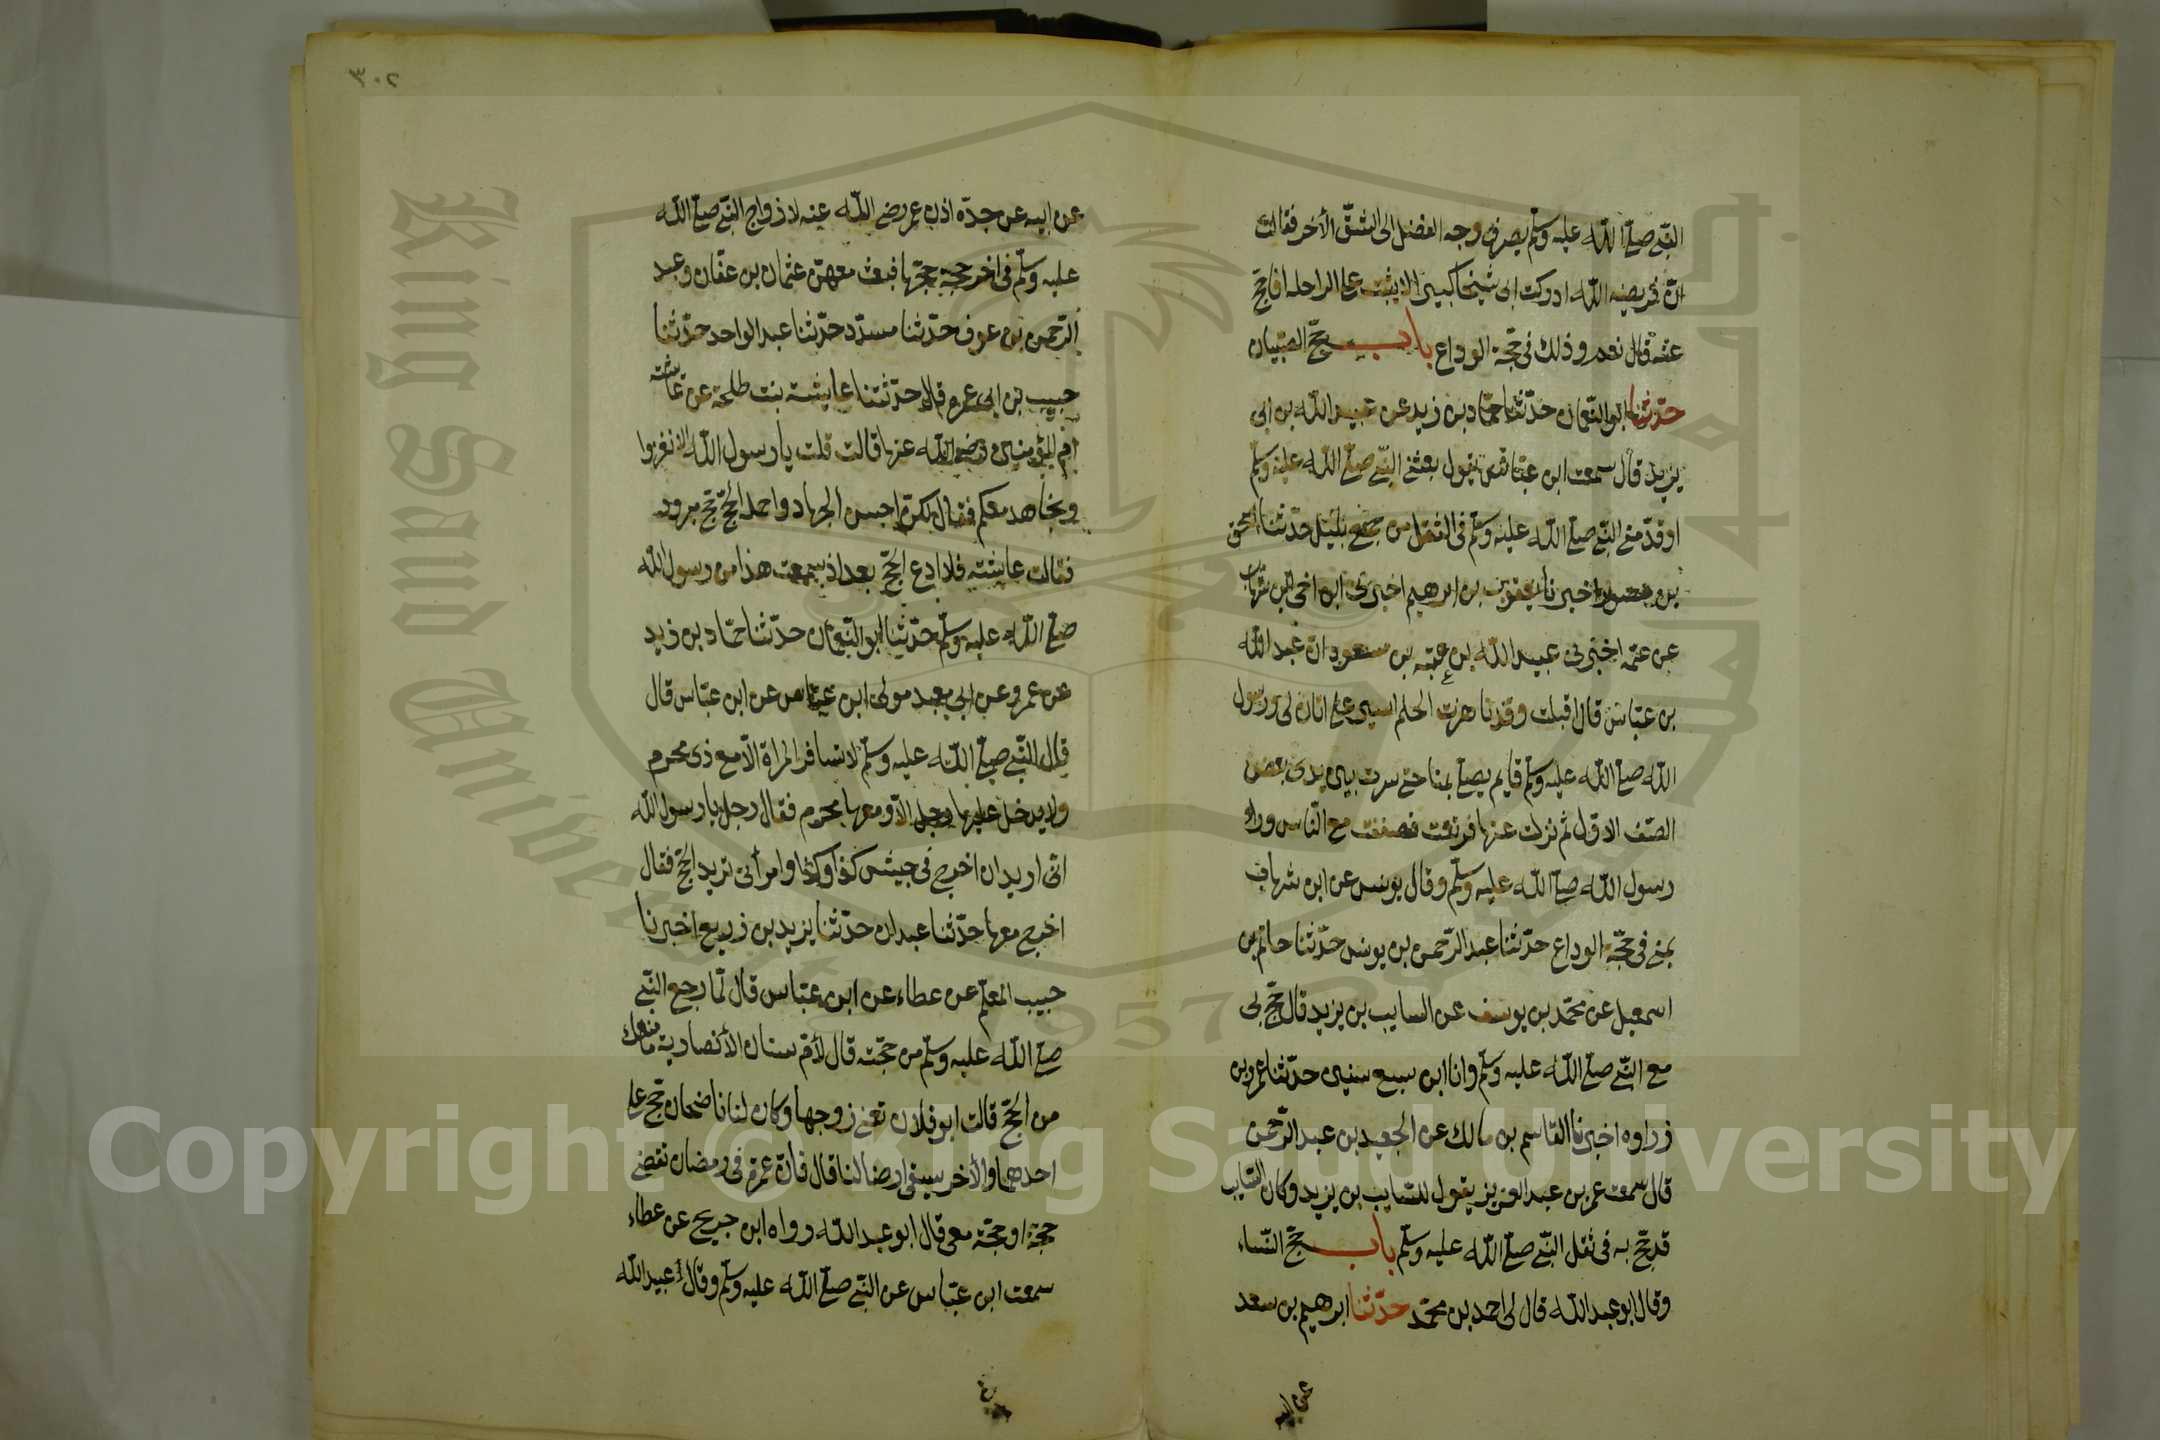 النبي صلى الله عليه وسلم يصرف وجه الفضل الى الشق الأخر فقالت
ان فريضه الله ادركت ابى شيخا كبيرا لا يثبت على الراحلة افاحج
عنه قال نعم وذلك فى حجة الوداع باب حج الصبيان
حدثنا ابو النعمان حدثنا حماد بن زيد عن عبيد الله بن ابى
يزيد قال سمعت ابن عباس يقول بعثنى النبي صلى الله عليه وسلم
او قدمنى النبي صلى الله عليه وسلم فى الثقل من جمع بليل حدثنا اسحق
بن منصور اخبرنا يعقوب بن ابرهيم اخبرنى ابن اخى ابن شهاب
عن عمه اخبرنى عبيد الله بن عتبه بن مسعود ان عبد الله
بن عباس قال اقبلت وقد ناهزت الحلم اسير على اتان لى ورسول
الله صلى الله عليه وسلم قايم يصلى بمنا حتى سرت بين يدى بعض
الصف الاول ثم نزلت عنها فرتعت فصففت مع الناس وراء
رسول الله صلى الله عليه وسلم وقال يونس عن ابن شهاب
بمنى فى حجة الوداع حدثنا عبد الرحمن بن يونس حدثنا حاتم بن
اسمعيل عن محمد بن يوسف عن السايب بن يزيد قال حج بى
مع النبي صلى الله عليه وسلم وانا ابن سبع سنين حدثنا عمرو بن
زراوه اخبرنا القاسم بن مالك عن الجعيد بن عبد الرحمن
قال سمعت عمر بن عبد العزيز يقول للسايب بن يزيد وكان السايب
قد حج به فى ثقل النبي صلى الله عليه وسلم باب حج النساء
وقال ابو عبد الله قال لى احمد بن محمد حدثنا ابرهيم بن سعد
عن ابيه
٣٠٢
عن ابيه عن جده اذن عمر رضى الله عنه لازواج النبي صلى الله
عليه وسلم فى اخر حجة حجها فبعث معهن عثمان بن عفان وعبد
الرحمن بن عوف حدثنا مسدد حدثنا عبد الواحد حدثنا
حبيب بن ابى عمره قال حدثتنا عايشة بنت طلحة عن عائشة
ام المؤمنين رضى الله عنها قالت قلت يا رسول الله الا نغزوا
ونجاهد معكم فقال لكن احسن الجهاد واجمله الحج حج مبرور
فقالت عايشة فلا ادع الحج بعد اذ سمعت هذا من رسول الله
صلى الله عليه وسلم حدثنا ابو النعمان حدثنا حماد بن زيد
عن عمرو عن ابى معبد مولى ابن عباس عن ابن عباس قال
قال النبي صلى الله عليه وسلم لا تسافر المراة الا مع ذى محرم
ولا يدخل عليها رجل الا ومعها محرم فقال رجل يا رسول الله
انى اريد ان اخرج فى جيش كذا وكذا وامرأتى تريد الحج فقال
اخرج معها حدثنا عبدان حدثنا يزيد بن زريع اخبرنا
حبيب المعلم عن عطاء عن ابن عباس قال لما رجع النبي
صلى الله عليه وسلم من حجته قال لأم سنان الأنصارية ما منعك
من الحج قالت ابو فلان تعنى زوجها وكان لنا ناضحان حج على
احدهما والأخر سيقى ارضا لنا قال فان عمرة فى رمضان تقضى
حجة او حجة معى قال ابو عبد الله رواه ابن جريج عن عطاء
سمعت ابن عباس عن النبي صلى الله عليه وسلم وقال عبيد الله
Copyright © King Saud University
King Saud University
1957